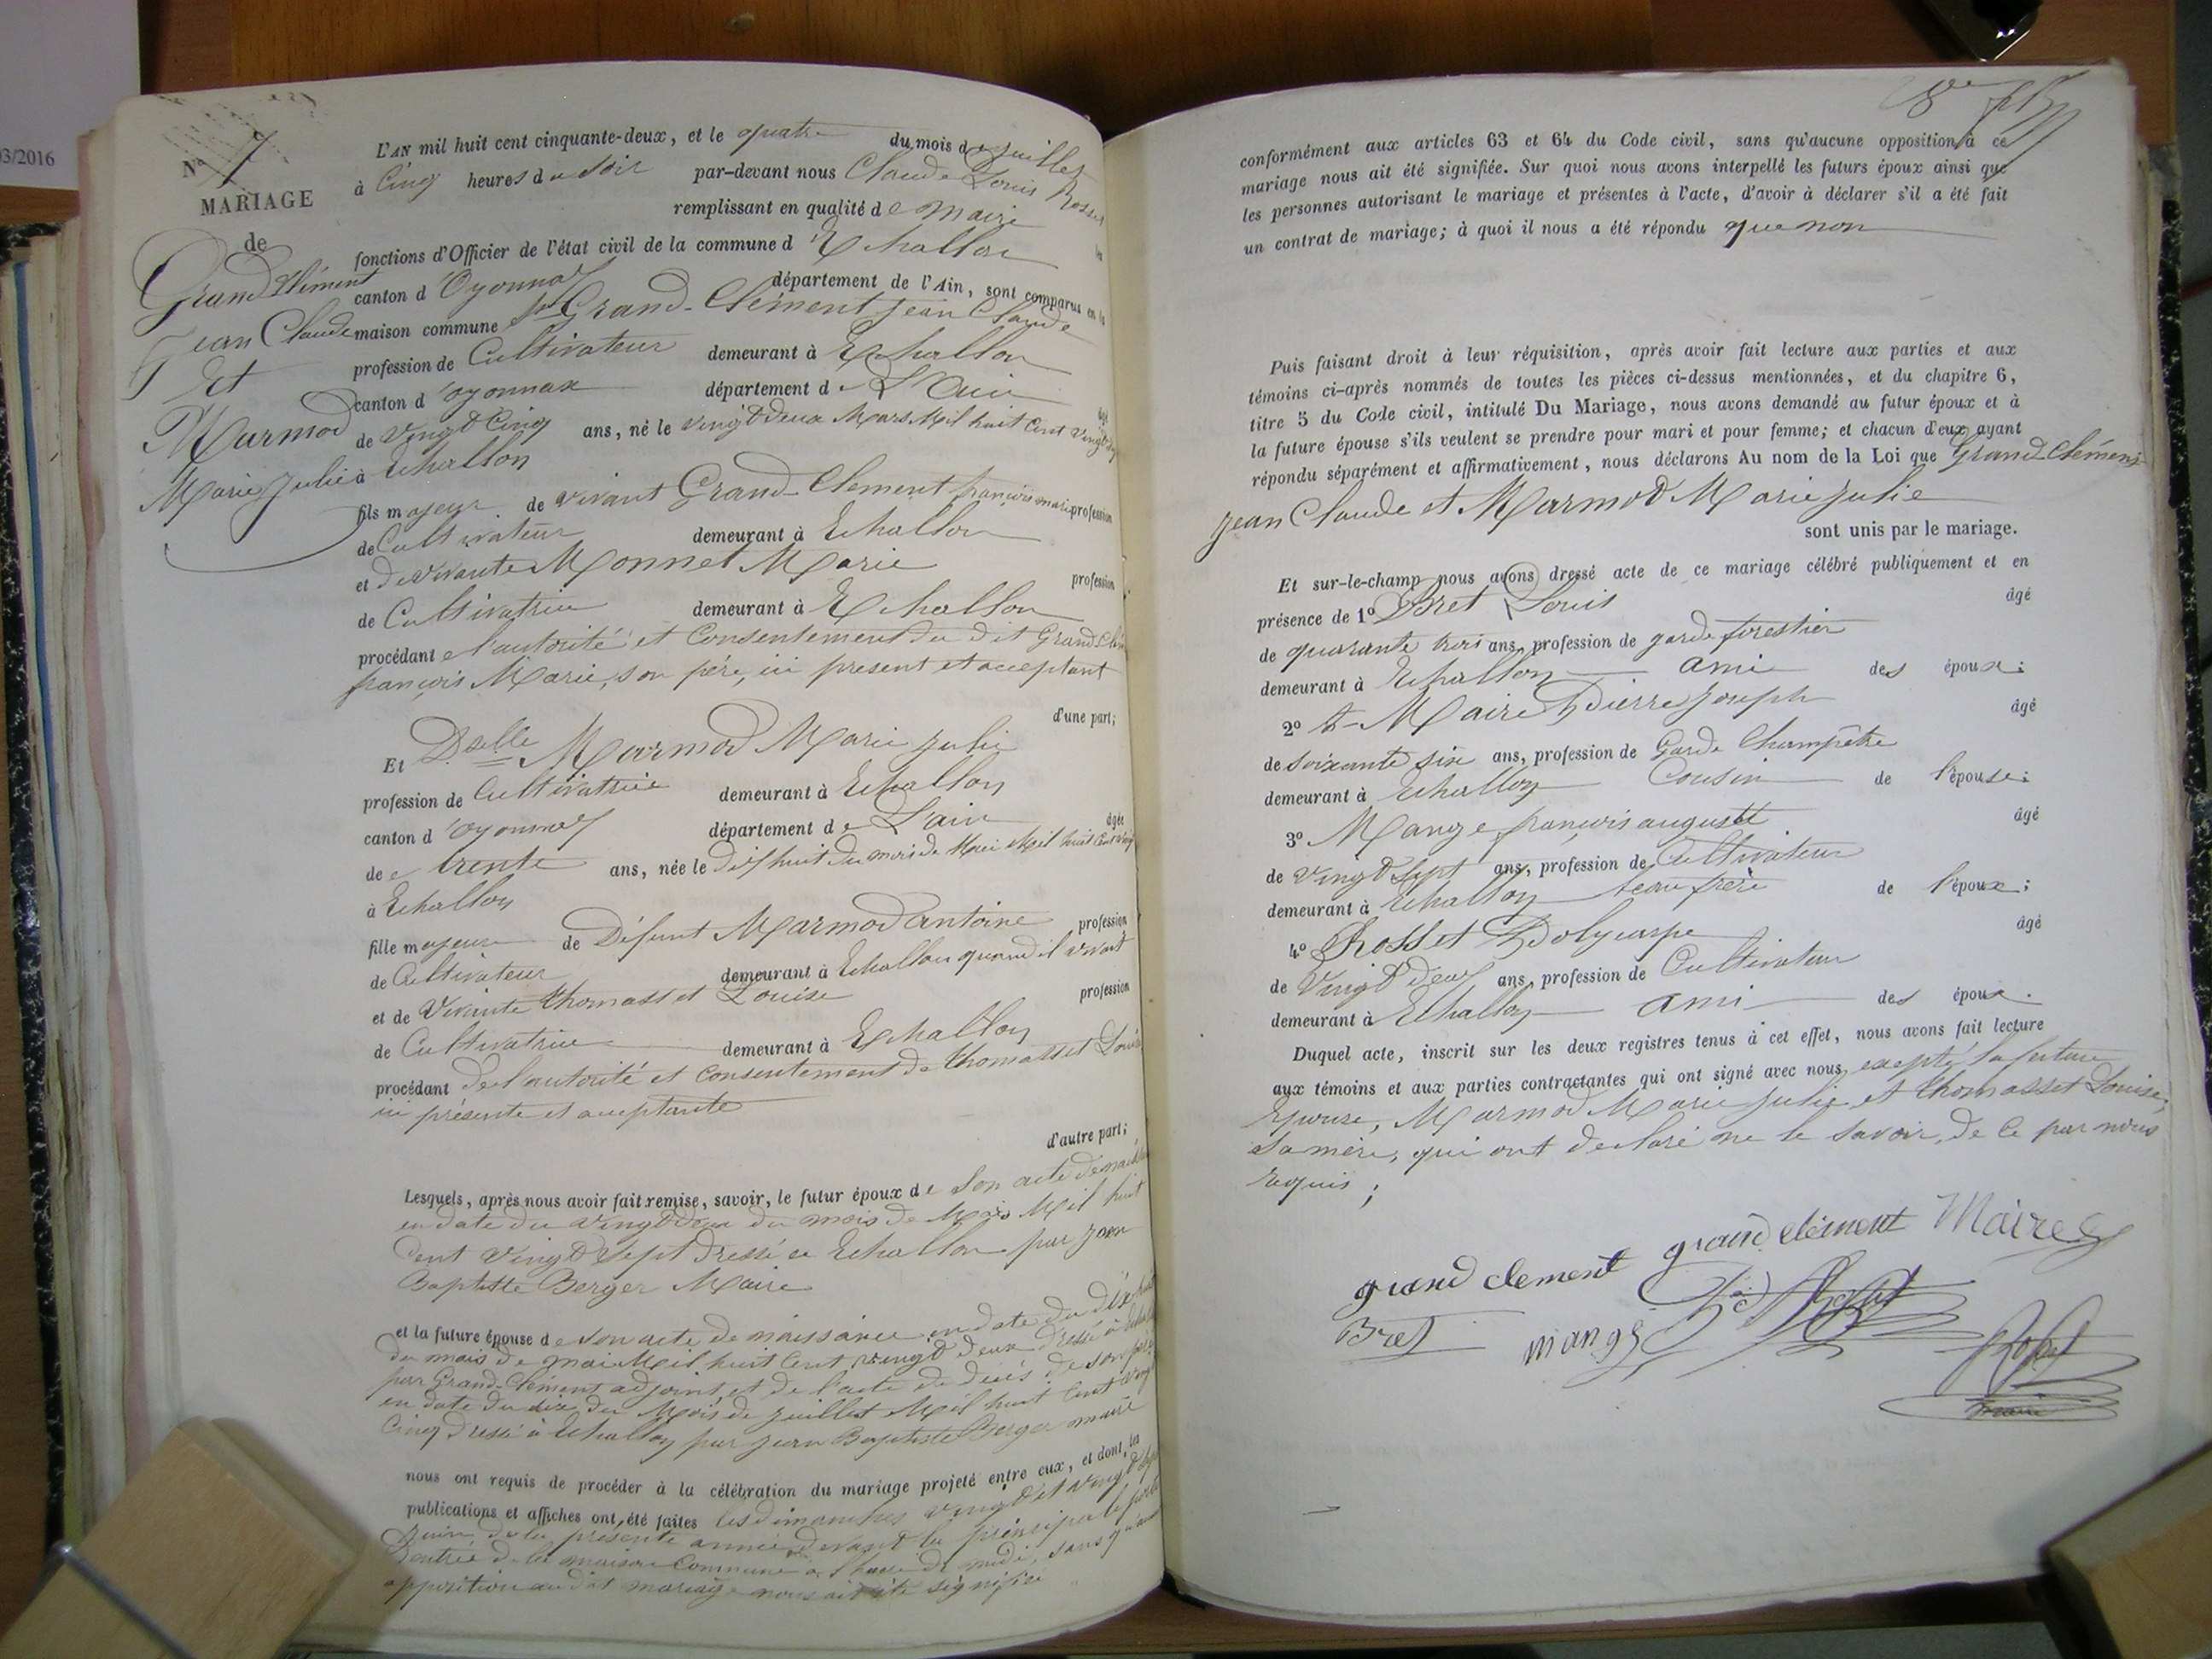 03/2016
N° 7
MARIAGE
de
Grand Clément
Jean Claude
Et
Marmod
Marie Julie
L'AN mil huit cent cinquante-deux, et le quatre du mois de juillet
à Cinq heures du soir par-devant nous Claude Louis Rosset
remplissant en qualité de Maire les
fonctions d'Officier de l'état civil de la commune d'Echallon
canton d'Oyonnax département de l'Ain, sont comparus en la
maison commune Grand-Clément Jean Claude
profession de Cultivateur demeurant à Echallon
canton d'oyonnax département de L'Ain âgé
de vingt Cinq ans, né le vingt deux Mars Mil huit Cent vingt
à Echallon
fils majeur de vivant Grand-Clement françois marie profession
de Cultivateur demeurant à Echallon
et de vivante Monnet Marie profession
de Cultivatrice demeurant à Echallon
procédant de l'autorité et Consentement du dit Grand
françois Marie, son père, ici présent et acceptant
d'une part;
Et Dselle Marmod Marie julie
profession de Cultivatrice demeurant à Echallon
canton d'oyonnax département de L'ain âgée
de trente ans, née le dix huit du mois de Mai Mil huit Cent vingt
à Echallon
fille majeure de Défunt Marmod antoine profession
de Cultivateur demeurant à Echallon quand il vivait
et de Vivante thomasset Louise profession
de Cultivatrice demeurant à Echallon
procédant de l'autorité et consentement de thomasset Louise
ici présente et acceptante
d'autre part;
Lesquels, après nous avoir fait remise, savoir, le futur époux de son acte de
en date du vingt deux du mois de Mars Mil huit
Cent vingt Sept dressé à Echallon par jean
Baptiste Berger Maire
et la future épouse de son acte de naissance en date du dix huit
du mois de mai Mil huit Cent vingt deux dressé à
par Grand-Clément adjoint, et de l'acte de décès de son père
en date du dix du Mois de juillet Mil huit Cent vingt
Cinq dressé à Echallon par jean Baptiste Berger maire
nous ont requis de procéder à la célébration du mariage projeté entre eux, et dont les
publications et affiches ont été faites les dimanches vingt et vingt sept
juin de la présente année devant la principale porte
d'entrée de la maison Commune à l'heure de midi, sans
opposition au dit mariage nous ait été signifiée
conformément aux articles 63 et 64 du Code civil, sans qu'aucune opposition à ce
mariage nous ait été signifiée. Sur quoi nous avons interpellé les futurs époux ainsi que
les personnes autorisant le mariage et présentes à l'acte, d'avoir à déclarer s'il a été fait
un contrat de mariage; à quoi il nous a été répondu que non
Puis faisant droit à leur réquisition, après avoir fait lecture aux parties et aux
témoins ci-après nommés de toutes les pièces ci-dessus mentionnées, et du chapitre 6,
titre 5 du Code civil, intitulé Du Mariage, nous avons demandé au futur époux et à
la future épouse s'ils veulent se prendre pour mari et pour femme; et chacun d'eux ayant
répondu séparément et affirmativement, nous déclarons Au nom de la Loi que Grand-Clément
jean Claude et Marmod Marie julie
sont unis par le mariage.
Et sur-le-champ nous avons dressé acte de ce mariage célébré publiquement et en
présence de 1° Bret Louis âgé
de quarante trois ans, profession de garde forestier
demeurant à Echallon ami des époux:
2° Maire Pierre Joseph âgé
de soixante six ans, profession de Garde Champêtre
demeurant à Echallon Cousin de l'épouse:
3° Mange françois auguste âgé
de vingt Sept ans, profession de Cultivateur
demeurant à Echallon beau frère de l'époux;
4° Rosset Polycarpe âgé
de Vingt deux ans, profession de Cultivateur
demeurant à Echallon ami des époux.
Duquel acte, inscrit sur les deux registres tenus à cet effet, nous avons fait lecture
aux témoins et aux parties contractantes qui ont signé avec nous, excepté la future
Epouse, Marmod Marie julie et thomasset Louise,
sa mère, qui ont déclaré ne le savoir, de ce par nous
requis;
grand clement grand clément Maire
Bret mange Rosset
Rosset
maire